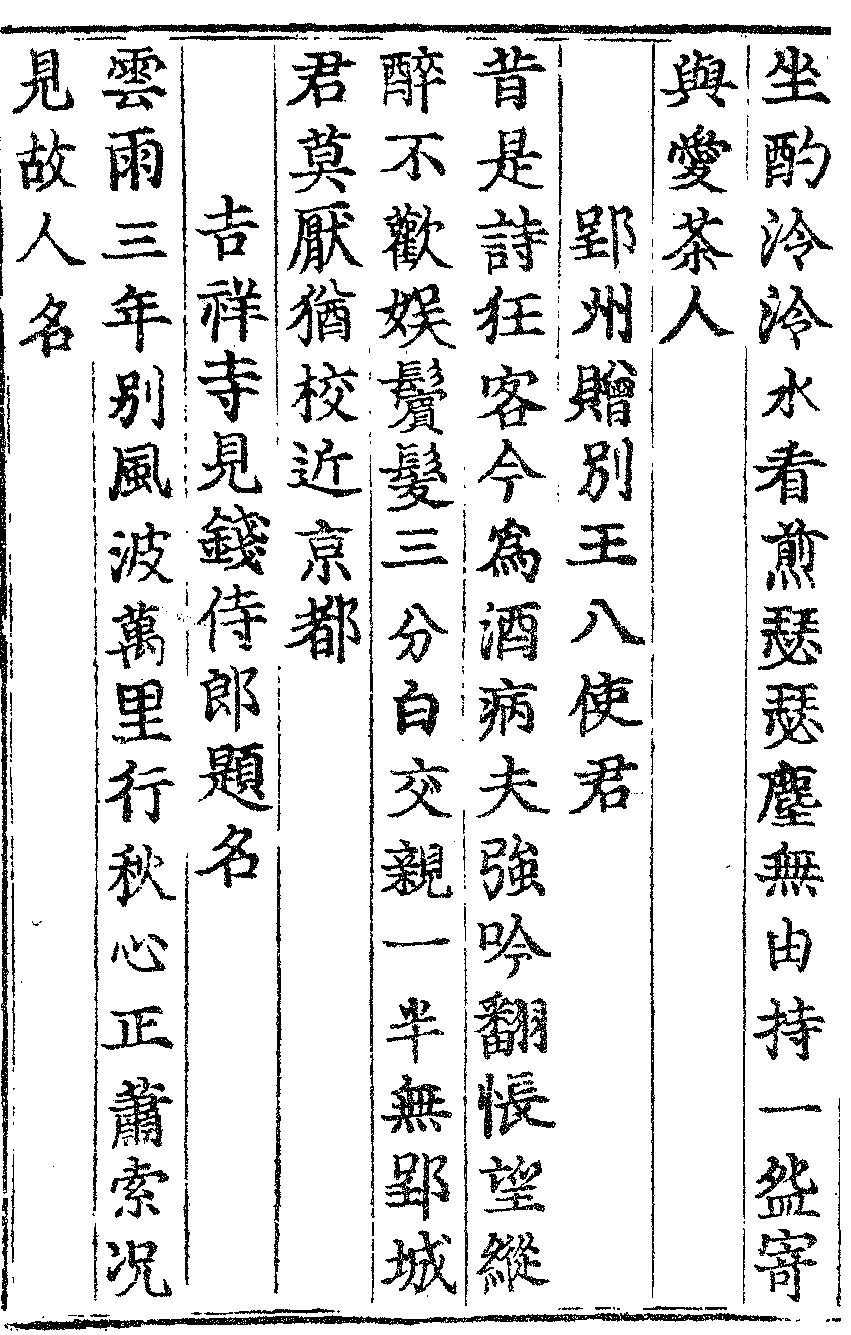 坐酌泠泠水看煎瑟瑟塵無由持一盌寄
與愛茶人
郢州贈別王八使君
昔是詩狂客今為酒病夫強吟翻悵望縱
醉不歡娛鬢髮三分白交親一半無郢城
君莫厭猶校近京都
吉祥寺見錢侍郎題名
雲雨三年別風波萬里行秋心正蕭索况
見故人名